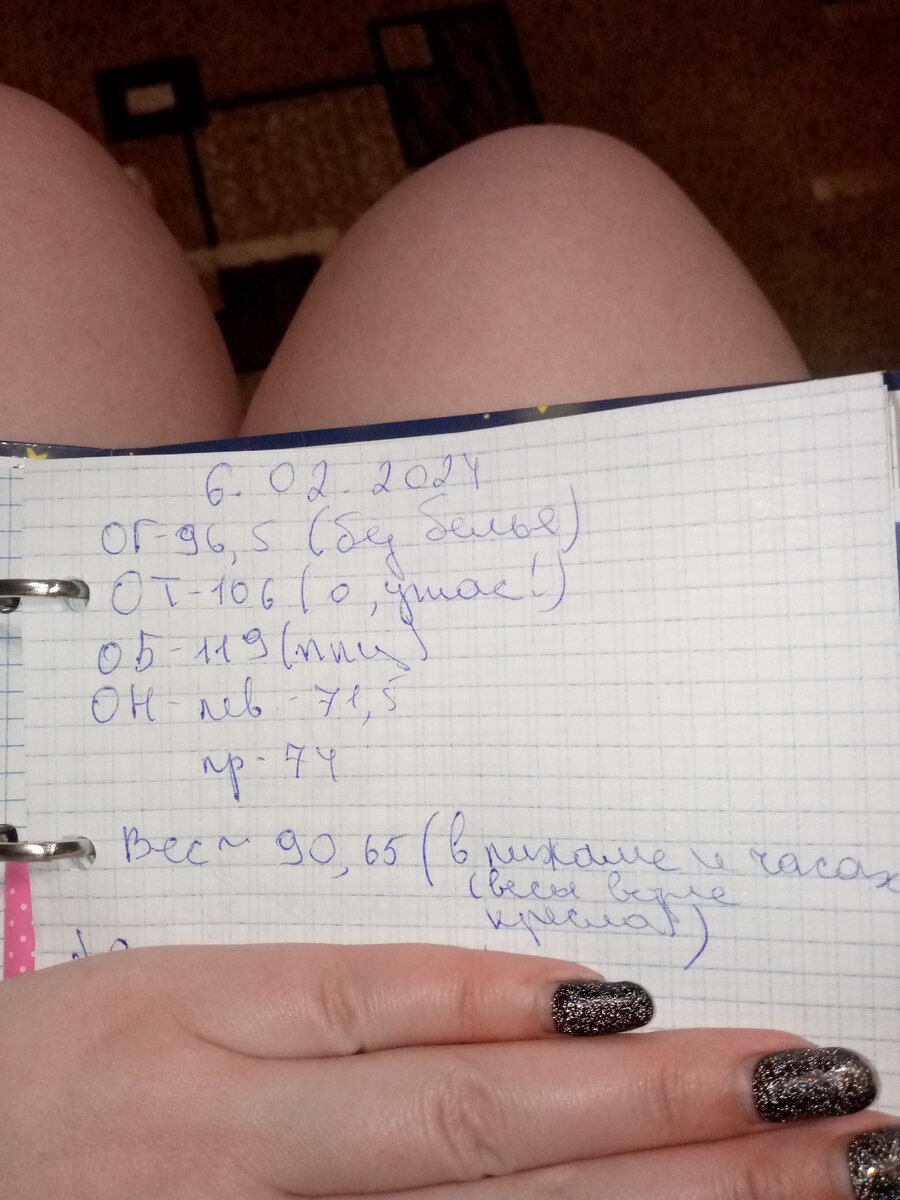 6. 02. 2024
ОГ-96,5 (без белья)
ОТ-106 (о, ужас!)
ОБ-119 (ппц)
ОН- лев - 71,5
пр- 74
Вес ~ 90,65 (в пижаме и часах
(весы возле
кресла))